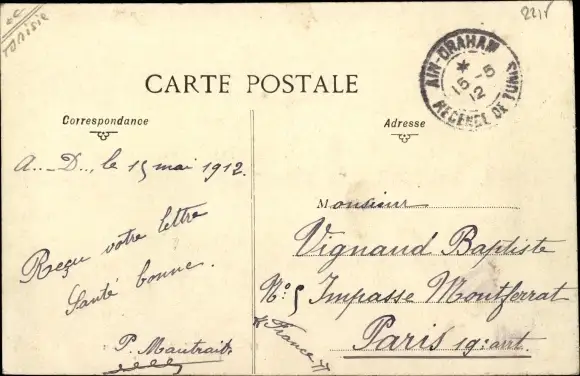 Tunisie
CARTE POSTALE
AIN-DRAHAM
15-5
12
REGENCE DE TUNIS
Correspondance
Adresse
A..-D.., le 15 mai 1912.
Reçu votre lettre
Santé bonne.
P. Mautrait
Monsieur
Vignaud Baptiste
N°: 5 Impasse Montferrat
Paris 19: arrt
France